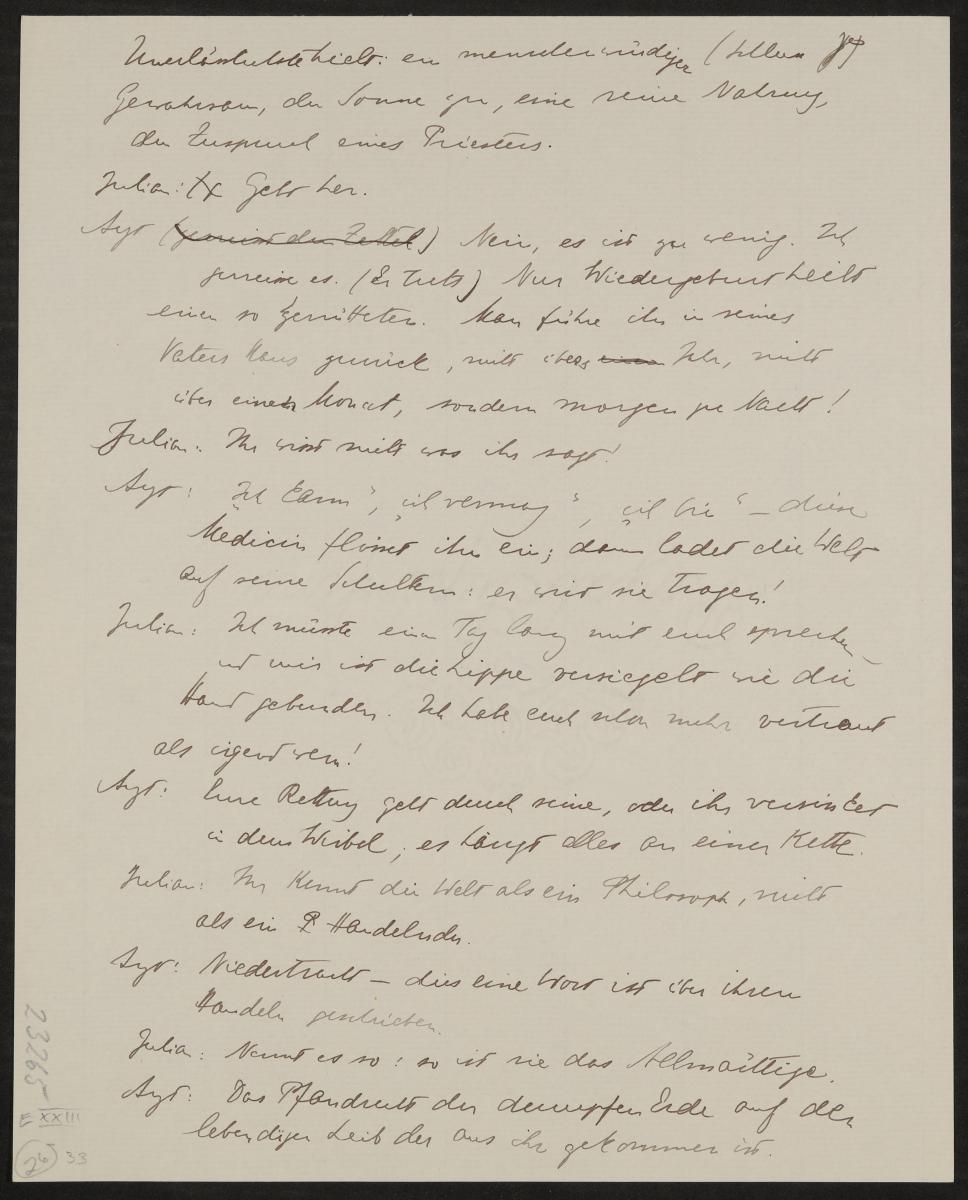 Unerlässlichste: ein menschenwürdiger (hellen
Gewahrsam, der Sonne zu, eine reine Nahrung,
den Zuspruch eines Priesters.
Julian: Gebt her.
Arzt (zerreisst den Zettel) Nein, es ist zu wenig. Ich
zerreisse es. (Er tuts) Nur Wiedergeburt heilt
einen so Zerrütteten. Man führe ihn in seines
Vaters Haus zurück, nicht übers einem Jahr, nicht
über einen Monat, sondern morgen zu Nacht!
Julian: Ihr wisst nicht was ihr sagt!
Arzt: „Ich kann“, „ich vermag“, „ich bin“ – diese
Medicin flösset ihm ein; dann ladet die Welt
auf seine Schultern: er wird sie tragen!
Julian: Ich müsste einen Tag lang mit euch sprechen –
und mir ist die Lippe versiegelt wie die
Hand gebunden. Ich habe euch schon mehr vertraut
als irgend wem!
Arzt: Eure Rettung geht durch seine, oder ihr versinket
in dem Wirbel, es hängt alles an einer Kette.
Julian: Ihr kennt die Welt als ein Philosoph, nicht
als ein P Handelnder.
Arzt: Niedertracht – dies eine Wort ist über ihrem
Handeln geschrieben.
Julian: Nennt es so: so ist sie das Allmächtige.
Arzt: Das Pfandrecht der dumpfen Erde auf den
lebendigen Leib der aus ihr gekommen ist.
23265
E XXIII
26 33